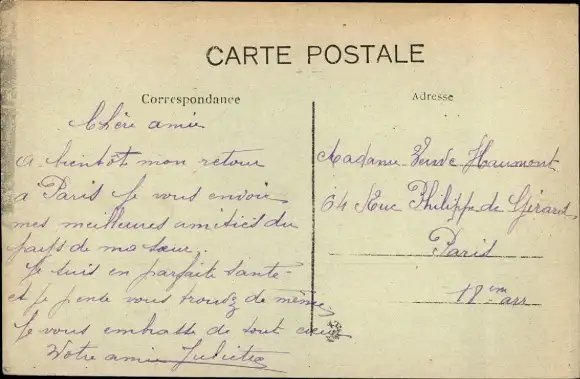 CARTE POSTALE
Correspondance
Chère amie
A bientôt mon retour
a Paris Je vous envoie
mes meilleures amitiés du
pays de ma sœur.
Je suis en parfaite santé
et je pense vous trouvez de même.
Je vous embrasse de tout cœur
Votre amie Juliette
Adresse
Madame Veuve Haumont
64 Rue Philippe de Gérard
Paris
18em arr